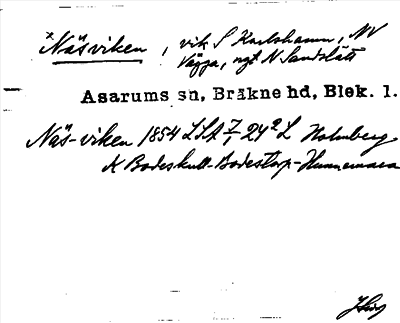 ×Näsviken, vik S Karlshamn, NV
Vägga, ngt N Sandslätt
Asarums sn, Bräkne hd, Blek. l.
Näs-viken 1854 LSA 7/1 24² L Holmberg
K Bodeskull-Bodestorp-Hunnemara